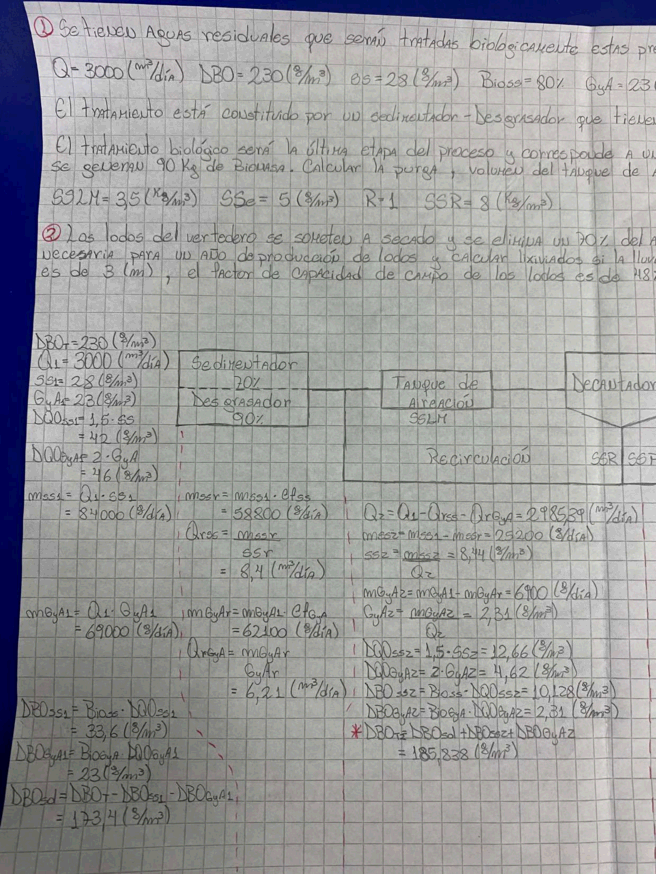 ① Se tienen Aguas residuales que serán tratadas biologicamente estas pre
Q=3000(m³/día) DBO=230(g/m³) SS=28(g/m³) Bioss=80% GyA=23(
El tratamiento está constituido por un sedimentador-Desgrasador que tienen
El tratamiento biológico será la última etapa del proceso y corresponde a un
se generan 90 Kg de Biomasa. Calcular la purga, volumen del tanque de
SSLM=3,5(Kg/m³) SSe=5(g/m³) R=1 SSR=8(Kg/m³)
② Los lodos del vertedero se someten a secado y se elimina un 70% del A
necesaria para un año de producción de lodos y calcular lixiviados si la lluv
es de 3(m), el factor de capacidad de campo de los lodos es de 48%
DBOT=230(g/m³)
Q1=3000(m³/día)
SS1=28(g/m³)
GyA=23(g/m³)
DQOss1=1,5·SS
=42(g/m³)
DQOGyA=2·GyA
=46(g/m³)
Sedimentador
70%
Desgrasador
90%
Tanque de
Aireación
SSLM
Decantador
Recirculación
SSR
SSP
mss1=Q1·SS1
=84000(g/día)
mssr=mss1·efss
=58800(g/día)
Qrss=mssr
SSr
=8,4(m³/día)
Q2=Q1-Qrss-QrGyA=2985,39(m³/día)
mss2=mss1-mssr=25200(g/día)
SS2=mss2=8,44(g/m³)
Q2
mGyA1=Q1·GyA1
=69000(g/día)
mGyAr=mGyA1·efGyA
=62100(g/día)
QrGyA=mGyAr
GyAr
=6,21(m³/día)
mGyA2=mGyA1-mGyAr=6900(g/día)
GyA2=mGyA2=2,31(g/m³)
Q2
DQOss2=1,5·SS2=12,66(g/m³)
DQOGyA2=2·GyA2=4,62(g/m³)
DBOss2=Bioss·DQOss2=10,128(g/m³)
DBOGyA2=BioGyA·DQOGyA2=2,31(g/m³)
*DBOT2=DBOsd+DBOss2+DBOGyA2
=185,838(g/m³)
DBOss1=Bioss·DQOss1
=33,6(g/m³)
DBOGyA1=BioGyA·DQOGyA1
=23(g/m³)
DBOsd=DBOT-DBOss1-DBOGyA1
=173,4(g/m³)